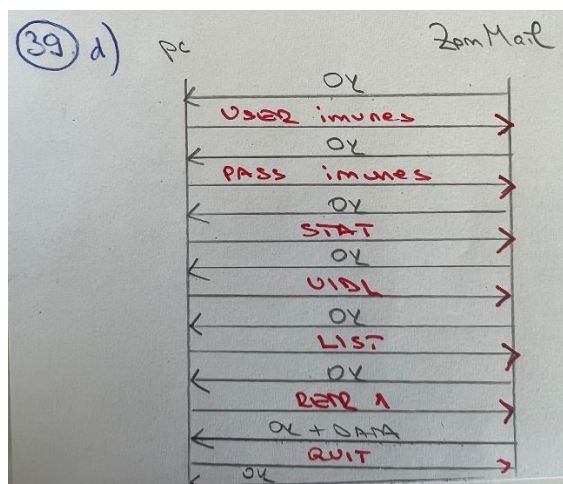 39. d) pc ZomMail
OK
USER imunes
OK
PASS imunes
OK
STAT
OK
UIDL
OK
LIST
OK
RETR 1
OK + DATA
QUIT
OK